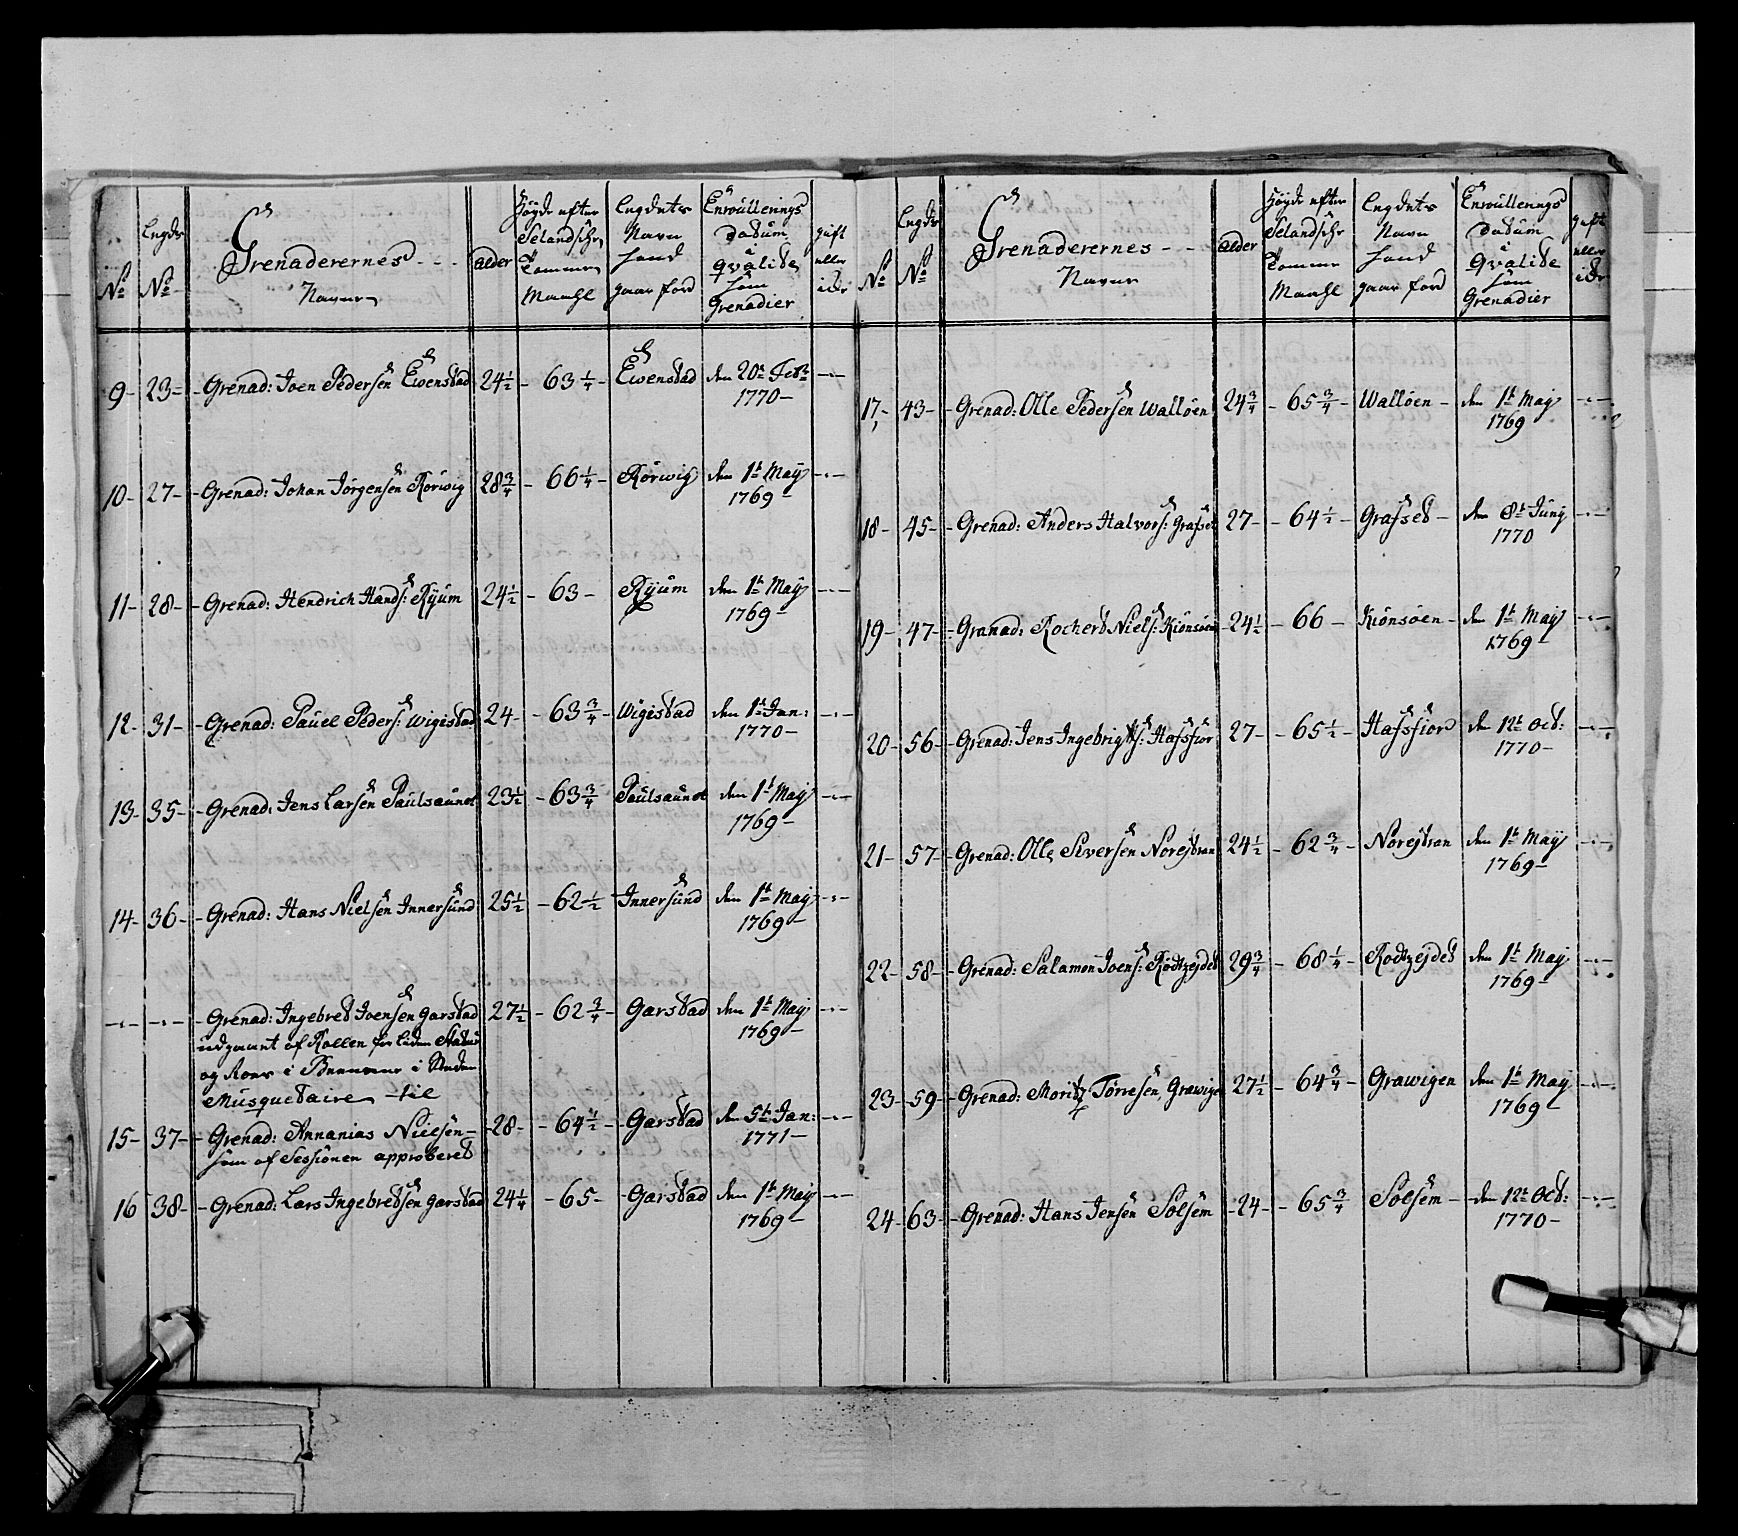 No
Legds No
Grenaderernes
Navne
Alder
Høyde efter Selandsche Tomme Maahl
Legdets Navn hand gaar for
Enroullerings Datum i Qvalite som Grenadier
gift eller icke
9- 23- Grenad: Joen Pedersen Ewenstad 24½ - 63¼ - Ewenstad den 20de Febr:
1770-
10- 27- Grenad: Johan Jørgensen Rörwig 28¾ - 66¼ - Rörwig den 1te May
1769-
11- 28- Grenad: Hendrich Hands: Ryum 24½ - 63 - Ryum den 1te May
1769-
12- 31- Grenad: Pauel Peders: Wigistad 24- - 63¾ - Wigistad den 1te Jan:
1770-
13- 35- Grenad: Jens Larsen Paulsaunet 23½ - 63¾ Paulsaunet den 1te May
1769-
14- 36- Grenad: Hans Nielsen Innersund 25½ - 62½ - Innersund den 1te May
1769-
Grenad: Ingebret Joensen Garstad 27½ - 62¾ - Garstad den 1te May
1769-
udgaaet af Rollen for liden
og i
Musquetaire - til
15- 37- Grenad: Annanias Nielsen - 28- - 64½ - Garstad den 5te Jan:
1771-
som af Sessionen approberet
16 38- Grenad: Lars Ingebretsen Garstad 24¼ - 65- - Garstad den 1te May
1769-
No
Legds No
Grenaderernes
Navne
Alder
Høyde efter Selandsche Tomme Maahl
Legdets Navn hand gaar for
Enroullerings Datum i Qvalite som Grenadier
gift eller icke
17, 43- Grenad: Olle Pedersen Walløen 24¾ - 65¾ - Walløen - den 1te May
1769
18- 45- Grenad: Anders Halvors: Grafset 27- - 64½ - Grafset - den 8te Juny
1770
19- 47- Granad: Rochert Niels: Kiönsöen 24½ - 66 - Kiönsöen - den 1te May
1769-
20- 56- Grenad: Jens Ingebrigts: Hafsfior 27- - 65½ - Hafsfior den 12te Oct:
1770-
21- 57- Grenad: Olle Siversen Norejtran 24½ - 62¾ - Norejtran den 1te May
1769-
22- 58- Grenad: Salamon Joens: Rodtzejdet 29¾ - 68¼ - Rodtzejdet den 1te May
1769-
23- 59- Grenad: Moritz Torresen Grawigen 27½ - 64¾ - Grawigen den 1te May
1769-
24- 63- Grenad: Hans Jensen Solsem - 24- - 65¾ Solsem - den 12te Oct:
1770-